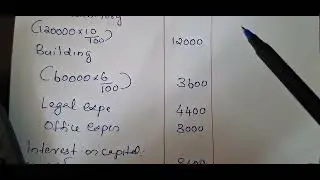 (120000 × 10/100) 12000
Building
(60000 × 6/100) 3600
Legal Expe 4400
Office Expen 3000
Interest on capital: